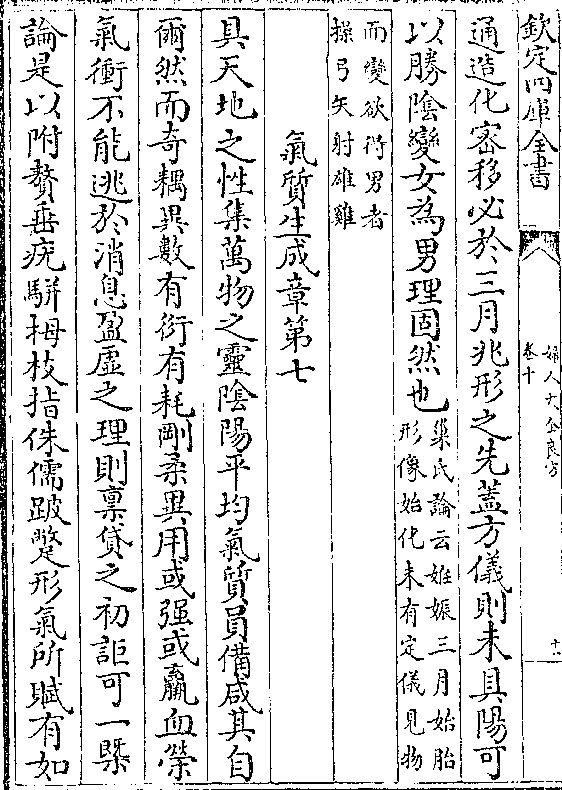 欽定四庫全書
婦人大全良方
卷十
十一
通造化密移必於三月兆形之先蓋方儀則未具陽可
以勝陰變女為男理固然也
巢氏論云姙娠三月始胎
形像始化未有定儀見物
而變欲得男者
操弓矢射雄雞
氣質生成章第七
具天地之性集萬物之靈陰陽平均氣質員備咸其自
爾然而奇耦異數有衍有耗剛柔異用或强或羸血榮
氣衛不能逃於消息盈虛之理則禀貸之初詎可一槩
論是以附贅垂疣駢拇枝指侏儒跛躄形氣所賦有如